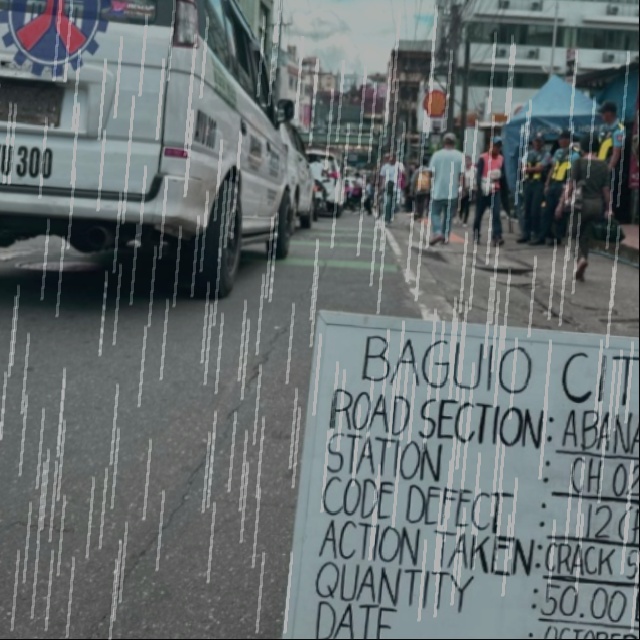 U 300
BAGUIO CIT
ROAD SECTION: ABANA
STATION : CH 02
CODE DEFECT : 120
ACTION TAKEN: CRACK S
QUANTITY : 50.00
DATE : OCTOBER